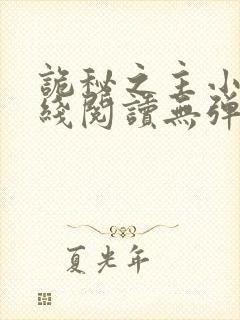 詭秘之主小
綫閱讀無彈
夏光年